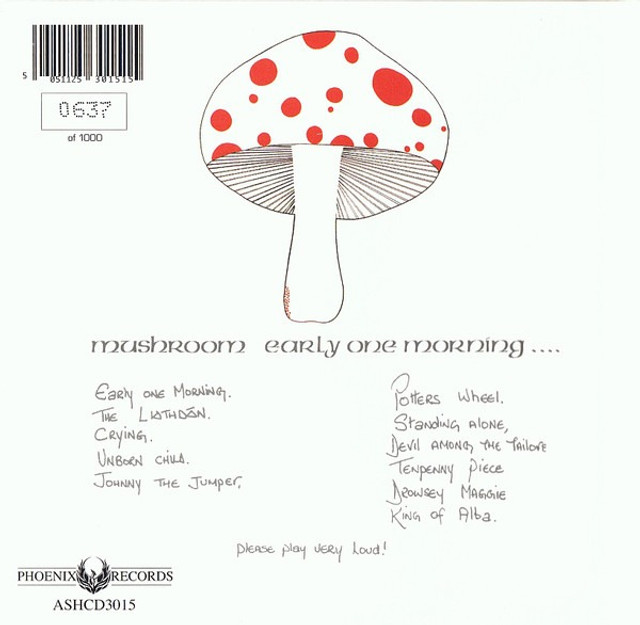 5 051125 301515
0637
of 1000
mushroom early one morning ....
Early one Morning.
The Liathdán.
Crying.
Unborn child.
Johnny the Jumper.
Potters Wheel.
Standing alone,
Devil among the Tailors
Tenpenny Piece
Drowsey Maggie
King of Alba.
please play very loud!
PHOENIX RECORDS
ASHCD3015